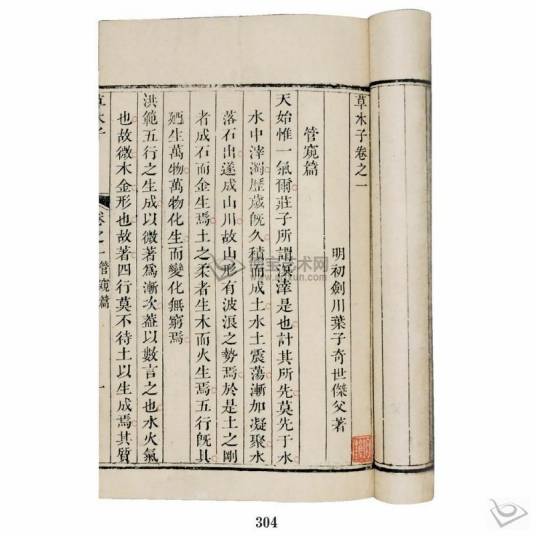 草木子卷之一
明初劍川葉子奇世傑父著
管窺篇
天始惟一氣爾莊子所謂溟涬是也計其所先莫先于水
水中滓濁歷歲旣久積而成土水土震蕩漸加凝聚水
落石出遂成山川故山形有波浪之勢焉於是土之剛
者成石而金生焉土之柔者生木而火生焉五行旣具
廼生萬物萬物化生而變化無窮焉
洪範五行之生成以微著爲漸次蓋以數言之也水火氣
也故微木金形也故著四行莫不待土以生成焉其質
草木子
卷之一管窺篇
一
304